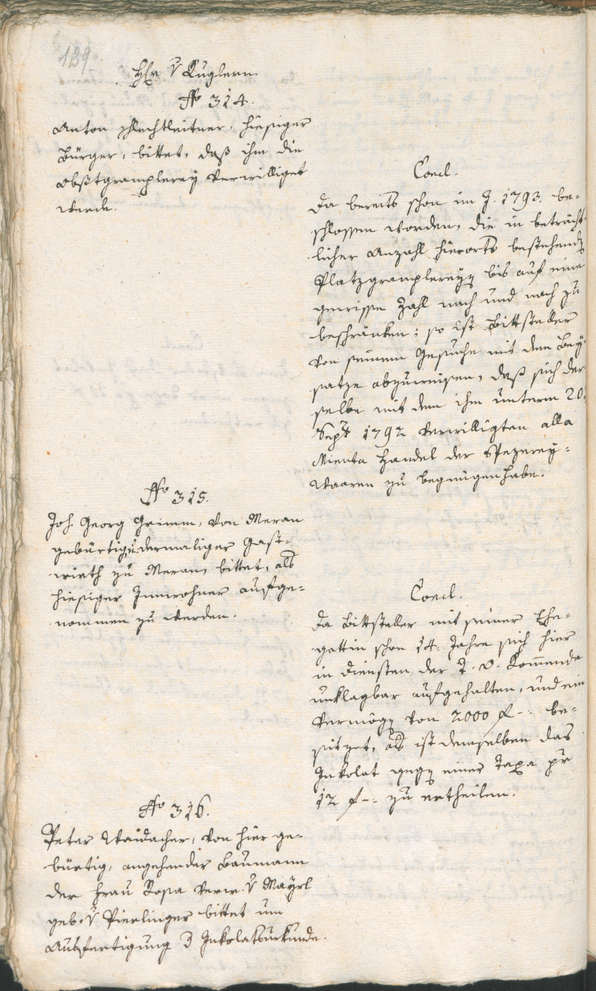 189.
H: v Kuglern.
No 314.
Anton Schlechtleitner, hiesiger
Bürger, bittet, daß ihm die
Obstgramplerey verwilliget
werde.
Concl.
Da bereits schon im J. 1793. be-
schlossen worden, die in beträcht-
licher Anzahl hierorts bestehende
Platzgramplereyen bis auf eine
gewisse Zahl nach und nach zu
beschränken; so ist Bittsteller
von seinem Gesuche mit dem Bey-
satze abzuweisen, daß sich der
selbe mit dem ihm unterm 20.
Sept 1792 verwilligten alla
Minuta Handel der Spezerey-
Waaren zu begnügen habe.
No 315.
Joh. Georg Grimm, von Meran
gebürtig, dermaliger Gast-
wirth zu Meran, bittet, als
hiesiger Innwohner aufge-
nommen zu werden.
Concl.
Da Bittsteller mit seiner Ehe-
gattin schon 14. Jahre sich hier
in Diensten der T. O. Komende
unklagbar aufgehalten, und ein
Vermögen von 2000 f -: be-
sitzet, als ist demselben das
Inkolat gegen einer Taxa pr
12 f -: zu ertheilen.
No 316.
Peter Waidacher, von hier ge-
bürtig, angehender Baumann
der Frau Rosa verw. v Mayrl
geb. v Pierlinger bittet um
Ausfertigung d Inkolatsurkunde.